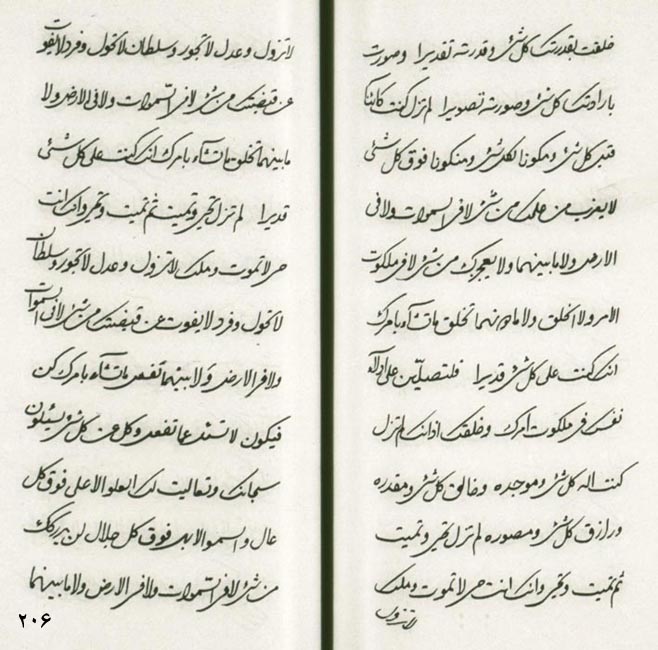 خلقت بقدرتک کل شئ وقدرته تقدیرا وصورت
بارادتک کل شئ وصورته تصویرا لم تزل کنت کائنا
قبل کل شئ ومکونا لکل شئ ومکونا فوق کل شئ
لا یعزب من علمک من شئ لا فی السموات ولا فی
الارض ولا ما بینهما ولا یعجزک من شئ لا فی ملکوت
الامر ولا الخلق ولا ما دونهما تخلق ما تشآء بامرک
انک کنت علی کل شئ قدیرا فلتصلین علی ادلآء
نفسک فی ملکوت امرک وخلقک اذ انک لم تزل
کنت اله کل شئ وموجده وخالق کل شئ ومقدره
ورازق کل شئ ومصوره لم تزل تحیی وتمیت
ثم تمیت وتحیی وانک انت حی لا تموت وملک
لا تزول
لا تزول وعدل لا تجور وسلطان لا تحول وفرد لا یفوت
عن قبضتک من شئ لا فی السموات ولا فی الارض ولا
ما بینهما تخلق ما تشآء بامرک انک کنت علی کل شئ
قدیرا لم تزل تحیی وتمیت ثم تمیت وتحیی وانک انت
حی لا تموت وملک لا تزول وعدل لا تجور وسلطان
لا تحول وفرد لا یفوت عن قبضتک من شئ لا فی السموات
ولا فی الارض ولا ما بینهما تفعل ما تشآء بامرک کن
فیکون لا تسئل عما تفعل وکل عن کل شئ یسئلون
سبحانک وتعالیت لک العلو الاعلی فوق کل
عال والسمو الابهی فوق کل جلال لن یدرکک
من شئ لا فی السموات ولا فی الارض ولا ما بینهما
۲۰۶